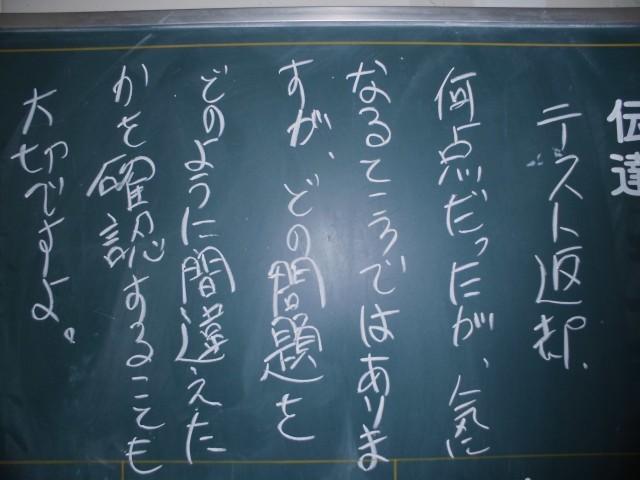 伝達
テスト返却.
何点だったが、気に
なるところではありま
すが、どの問題を
どのように間違えた
かを確認することも
大切ですよ。